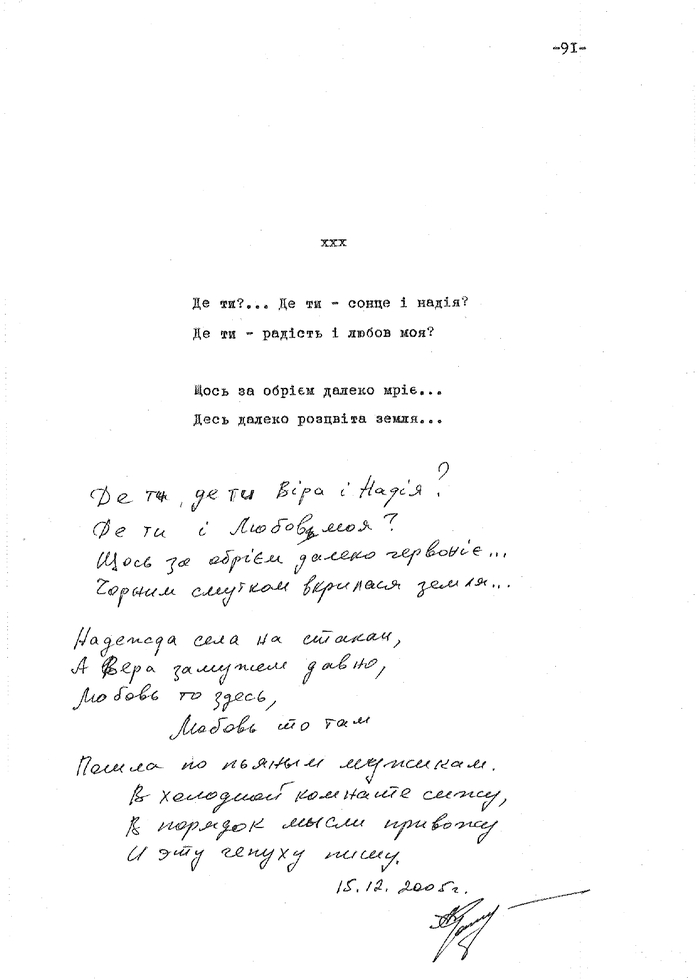 -91-
xxx
Де ти?... Де ти - сонце і надія?
Де ти - радість і любов моя?
Щось за обрієм далеко мріє...
Десь далеко розцвіта земля...
Де ти, де ти Віра і Надія?
Де ти і Любов моя?
Щось за обрієм далеко червоніє...
Чорним смутком вкрилася земля...
Надежда села на стакан,
А Вера замужем давно,
Любовь то здесь,
Любовь то там
Пошла по пьяным мужикам.
В холодной комнате сижу,
В порядок мысли привожу
И эту чепуху пишу.
15.12.2005г.